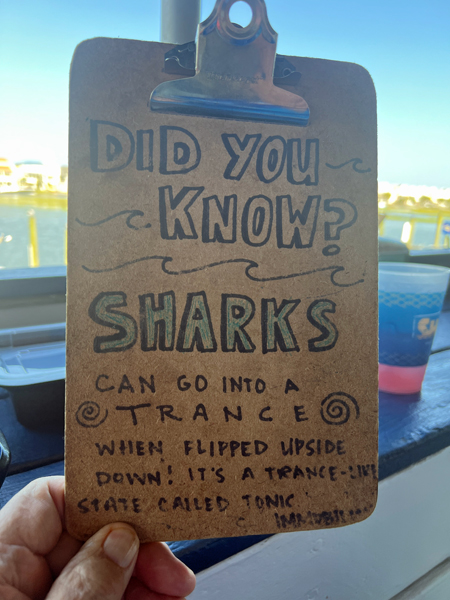 DID YOU
KNOW?
SHARKS
CAN GO INTO A
TRANCE
WHEN FLIPPED UPSIDE
DOWN! IT'S A TRANCE-LIKE
STATE CALLED TONIC